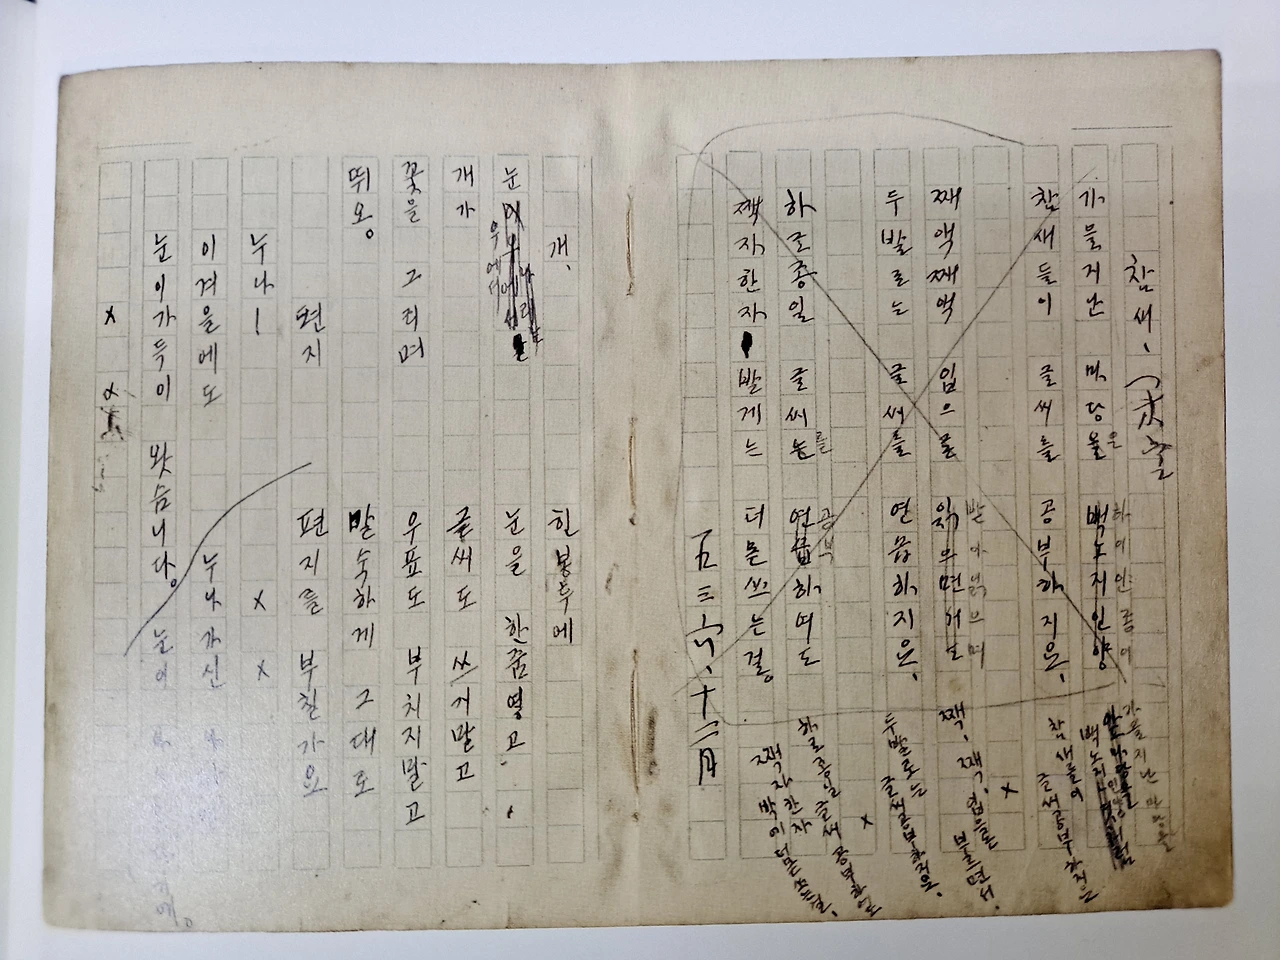 참새、
가을지난 마당을 백노지인양
참새들이 글씨를 공부하지요、
째액째액 입으로
두발로는 글씨를 연습하지요、
하로종일 글씨를 공부하여도
짹자한자 발게는 더몯쓰는걸。
五三六、十二月
가을지난 마당을
참새들이 글씨공부하지요
×
짹、짹、입으로 부르면서、
두발로는 글씨공부하지요、
×
하로종일 글씨 공부하여도
짹자한자 박에 더몯쓰는걸、
개、
눈 우에서
개가
꽃을 그리며
뛰오。
편지
누나!
이겨을에도
눈이가득이 왓슴니다。
× ×
힌봉투에
눈을 한줌옇고
글씨도 쓰지말고
우표도 부치지말고
말숙하게 그대로
편지를 부칠가요
× ×
누나가신
눈이